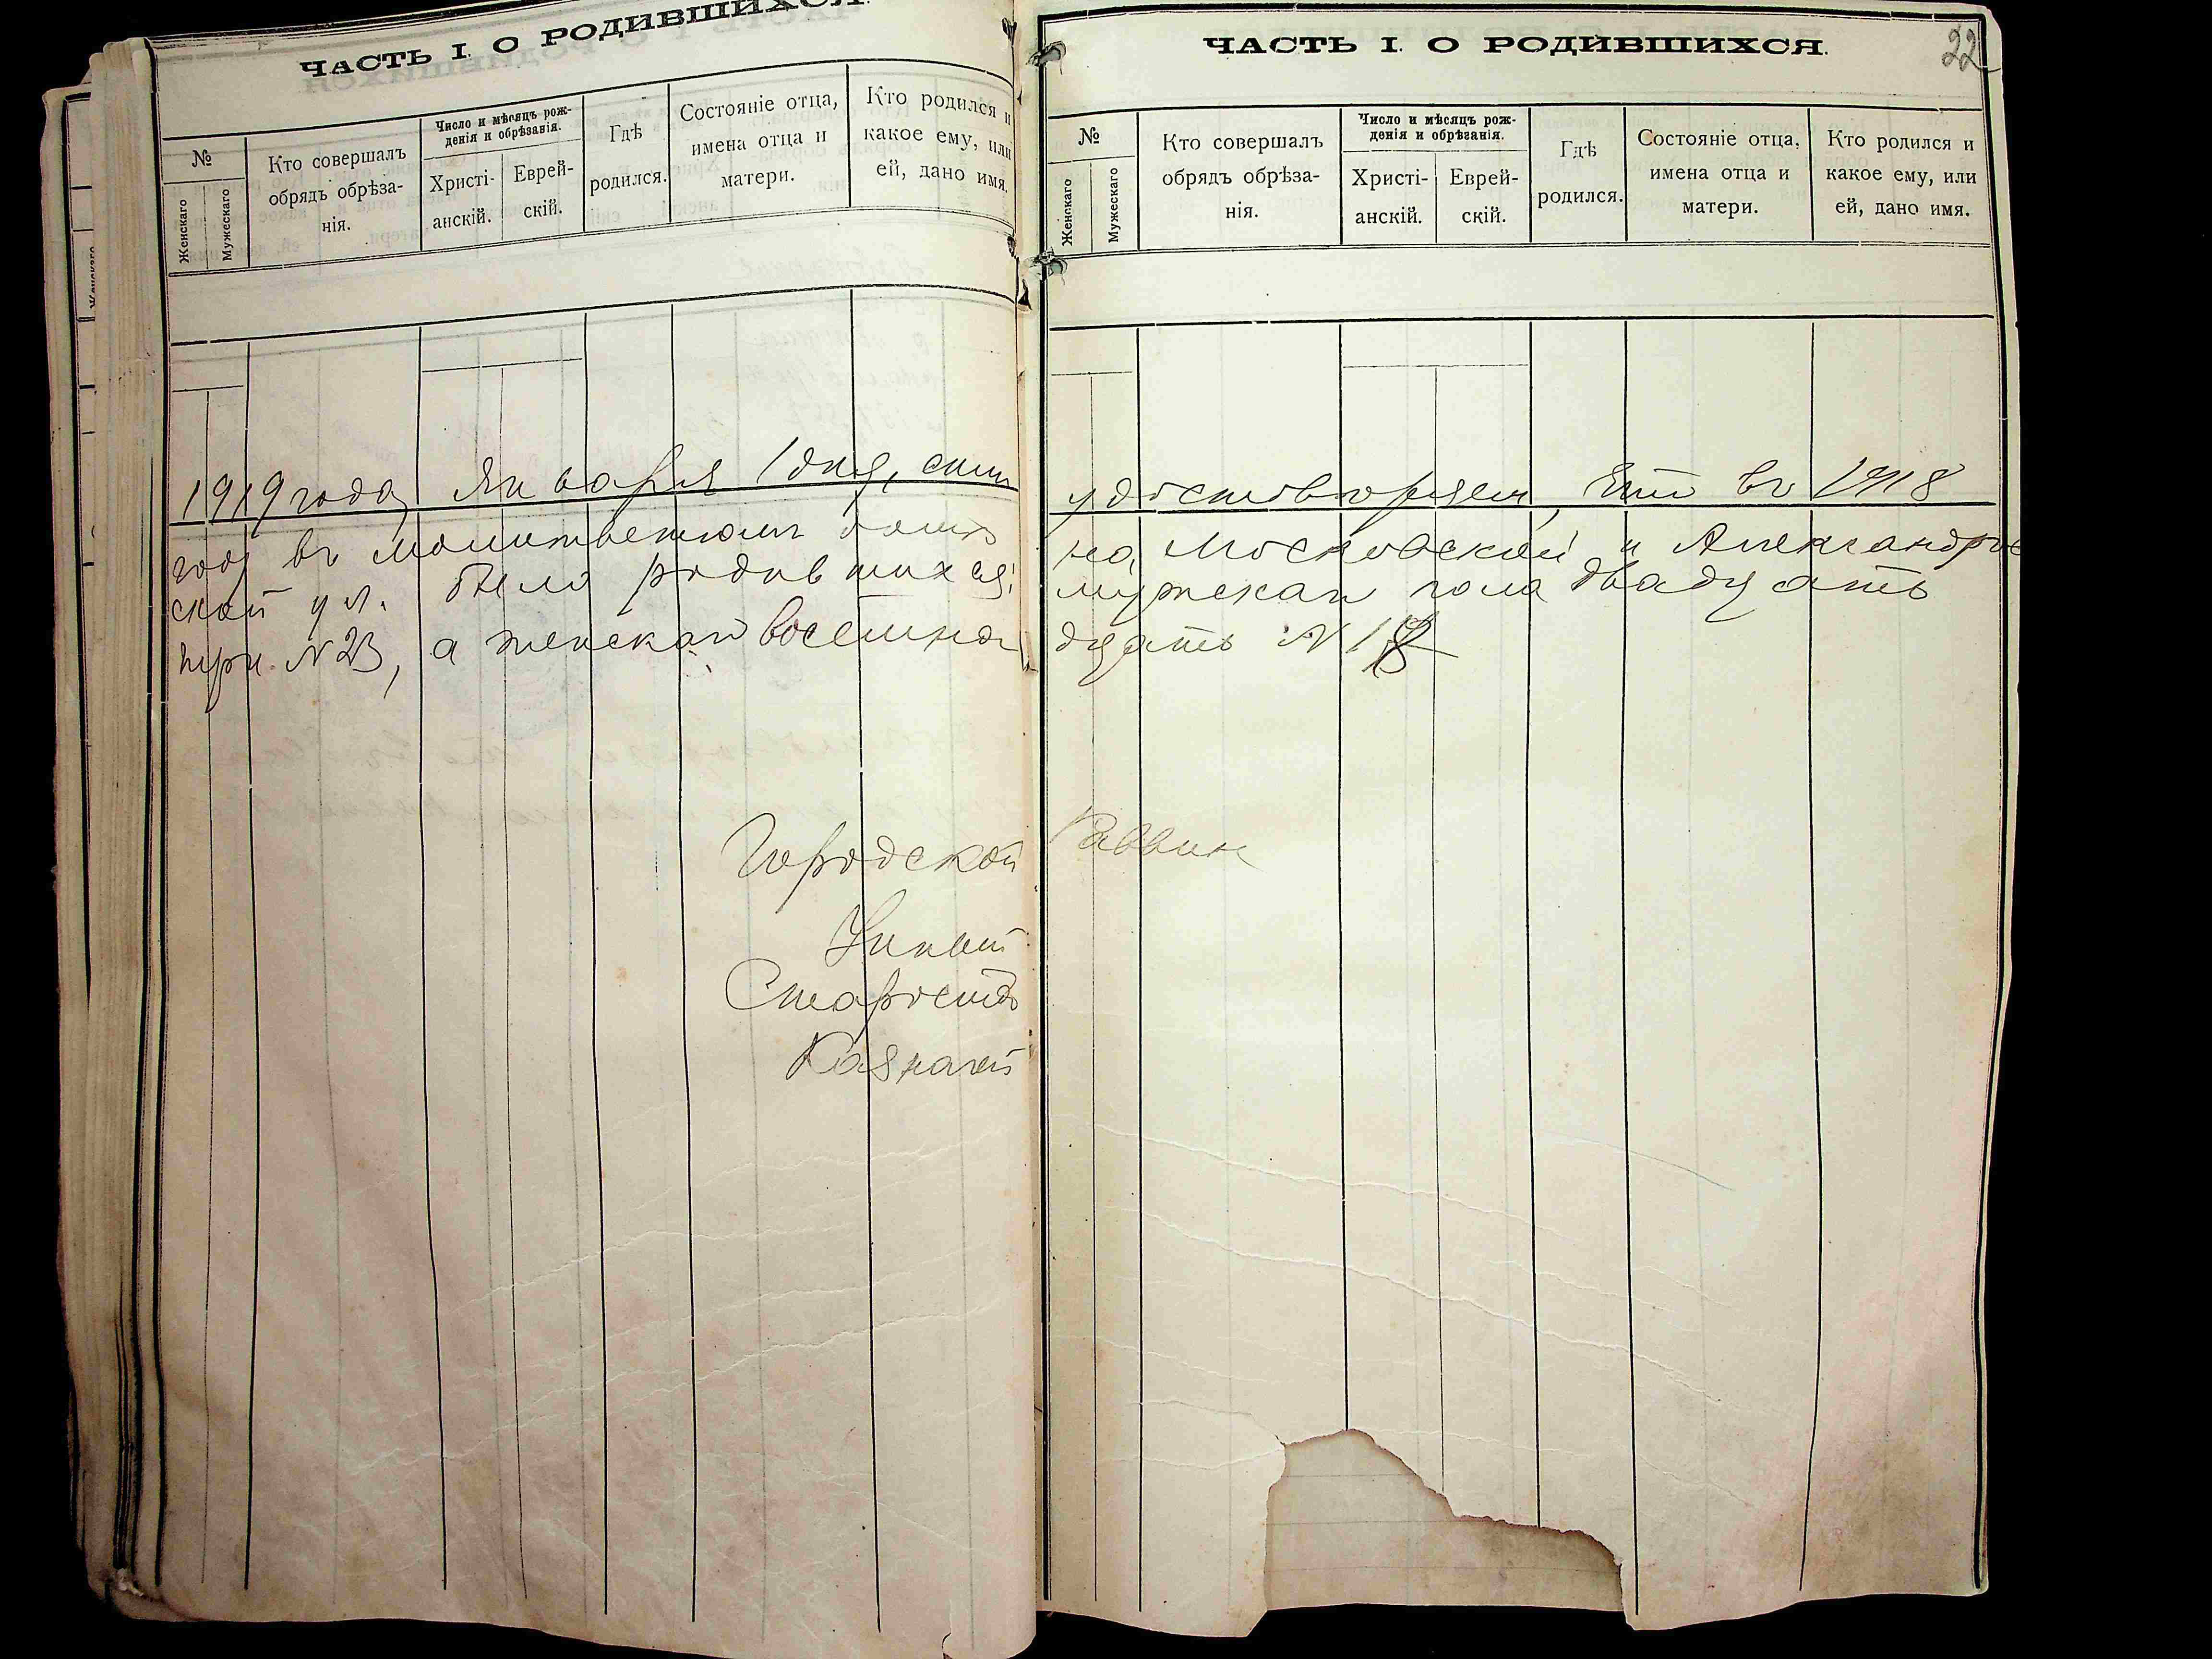 ЧАСТЬ I. О РОДИВШИХСЯ.
№
Женскаго
Мужескаго
Кто совершалъ
обрядъ обрѣза-
нія.
Число и мѣсяцъ рож-
денія и обрѣзанія.
Христі-
анскій.
Еврей-
скій.
Гдѣ
родился.
Состояніе отца,
имена отца и
матери.
Кто родился и
какое ему, или
ей, дано имя.
ЧАСТЬ I. О РОДИВШИХСЯ.
22
№
Женскаго
Мужескаго
Кто совершалъ
обрядъ обрѣза-
нія.
Число и мѣсяцъ рож-
денія и обрѣзанія.
Христі-
анскій.
Еврей-
скій.
Гдѣ
родился.
Состояніе отца,
имена отца и
матери.
Кто родился и
какое ему, или
ей, дано имя.
1919 года Января 1 дня, сим удостоверяем, что въ 1918
году въ молитвенном доме на Московской и Александров
ской ул. было родившихся: мужескаго пола двадцать
три №23, а женскаго восемнадцать №18
Городской Раввин
Ученый
Староста
Казначей